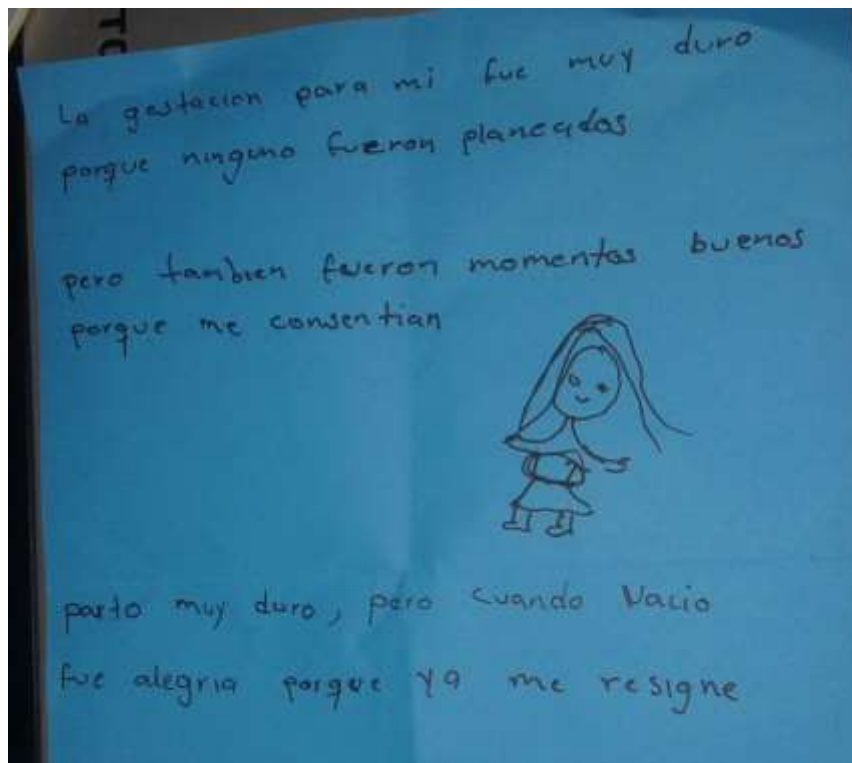 TO
La gestacion para mi fue muy duro
porque ninguno fueron planeados
pero tambien fueron momentos buenos
porque me consentian
parto muy duro, pero cuando Nacio
fue alegria porque ya me resigne